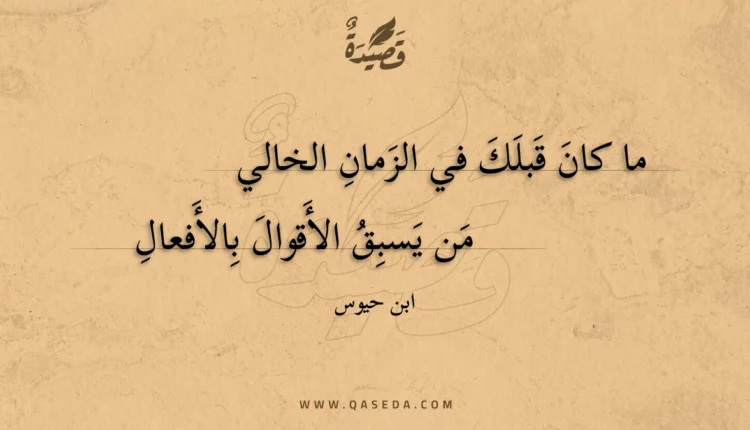 قَصِيدَةٌ
ما كانَ قَبلَكَ في الزَمانِ الخالي
مَن يَسبِقُ الأَقوالَ بِالأَفعالِ
ابن حيوس
WWW.QASEDA.COM